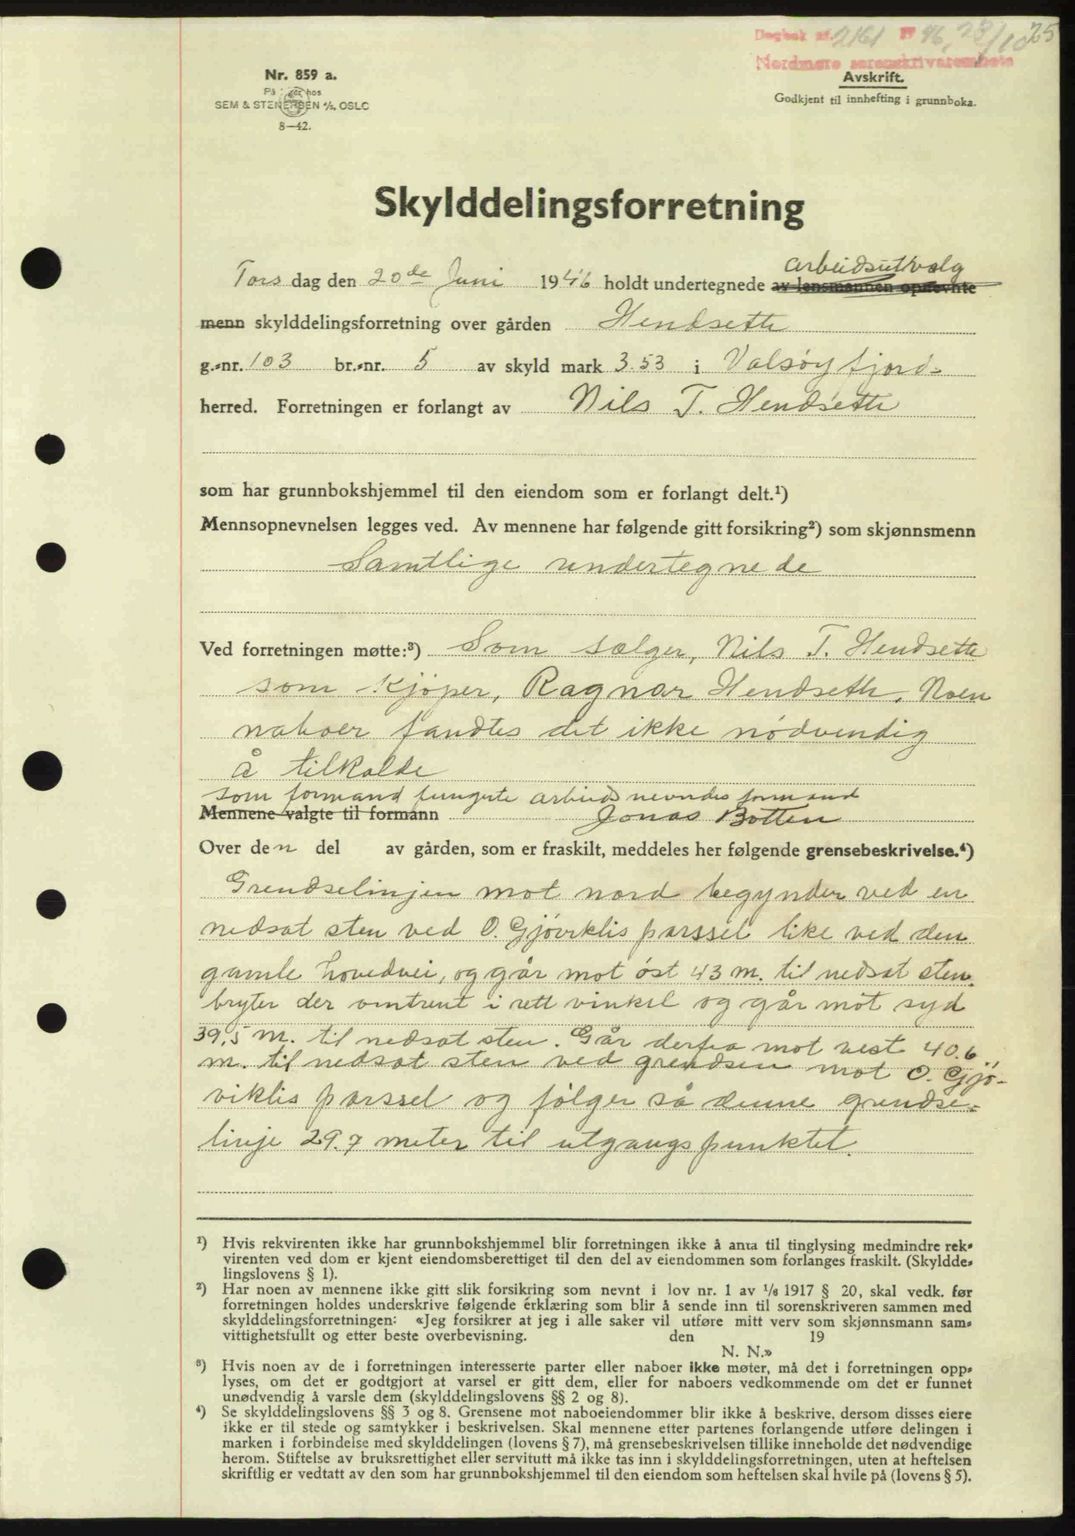 Dagbok nr. 2161 19 46, 23/10 25
Nordmøre sorenskriverembete
Nr. 859 a.
På lager hos
SEM & STENERSEN A/S, OSLO
8—42.
Avskrift.
Godkjent til innhefting i grunnboka.
Skylddelingsforretning
arbeidsutvalg
Tors dag den 20de Juni 1946 holdt undertegnede av lensmannen opnevnte
menn skylddelingsforretning over gården Hendseth
g.-nr. 103 br.-nr. 5 av skyld mark 3.53 i Valsøyfjord-
herred. Forretningen er forlangt av Nils T. Hendseth
som har grunnbokshjemmel til den eiendom som er forlangt delt.¹)
Mennsopnevnelsen legges ved. Av mennene har følgende gitt forsikring²) som skjønnsmenn
Samtlige undertegnede
Ved forretningen møtte:³) Som sælger, Nils T. Hendseth
som kjøper, Ragnar Hendseth, Noen
naboer fandtes det ikke nødvendig
å tilkalde
som formand fungerte arbeidsnevndes formand
Mennene valgte til formann Jonas Botten
Over den del av gården, som er fraskilt, meddeles her følgende grensebeskrivelse.⁴)
Grendselinjen mot nord begynder ved en
nedsat sten ved O. Gjöviklis parssel like ved den
gamle hovedvei, og går mot öst 43 m. til nedsat sten.
bryter der omtrent i rett vinkel og går mot syd
39,5 m. til nedsat sten. Går derfra mot vest 40.6
m. til nedsat sten ved grendsen mot O. Gjö-
viklis parssel og følger så denne grendse-
linje 29.7 meter til utgangspunktet.
¹) Hvis rekvirenten ikke har grunnbokshjemmel blir forretningen ikke å anta til tinglysing medmindre rek-
virenten ved dom er kjent eiendomsberettiget til den del av eiendommen som forlanges fraskilt. (Skyldde-
lingslovens § 1).
²) Har noen av mennene ikke gitt slik forsikring som nevnt i lov nr. 1 av 1/6 1917 § 20, skal vedk. før
forretningen holdes underskrive følgende erklæring som blir å sende inn til sorenskriveren sammen med
skylddelingsforretningen: «Jeg forsikrer at jeg i alle saker vil utføre mitt verv som skjønnsmann sam-
vittighetsfullt og etter beste overbevisning. den 19
N. N.»
³) Hvis noen av de i forretningen interesserte parter eller naboer ikke møter, må det i forretningen opp-
lyses, om det er godtgjort at varsel er gitt dem, eller for naboers vedkommende om det er funnet
unødvendig å varsle dem (skylddelingslovens §§ 2 og 8).
⁴) Se skylddelingslovens §§ 3 og 8. Grensene mot naboeiendommer blir ikke å beskrive, dersom disses eiere
ikke er til stede og samtykker i beskrivelsen. Skal mennene etter partenes forlangende utføre delingen i
marken i forbindelse med skylddelingen (lovens § 7), må grensebeskrivelsen tillike inneholde det nødvendige
herom. Stiftelse av bruksrettighet eller servitutt må ikke tas inn i skylddelingsforretningen, uten at heftelsen
skriftlig er vedtatt av den som har grunnbokshjemmel til den eiendom som heftelsen skal hvile på (lovens § 5).